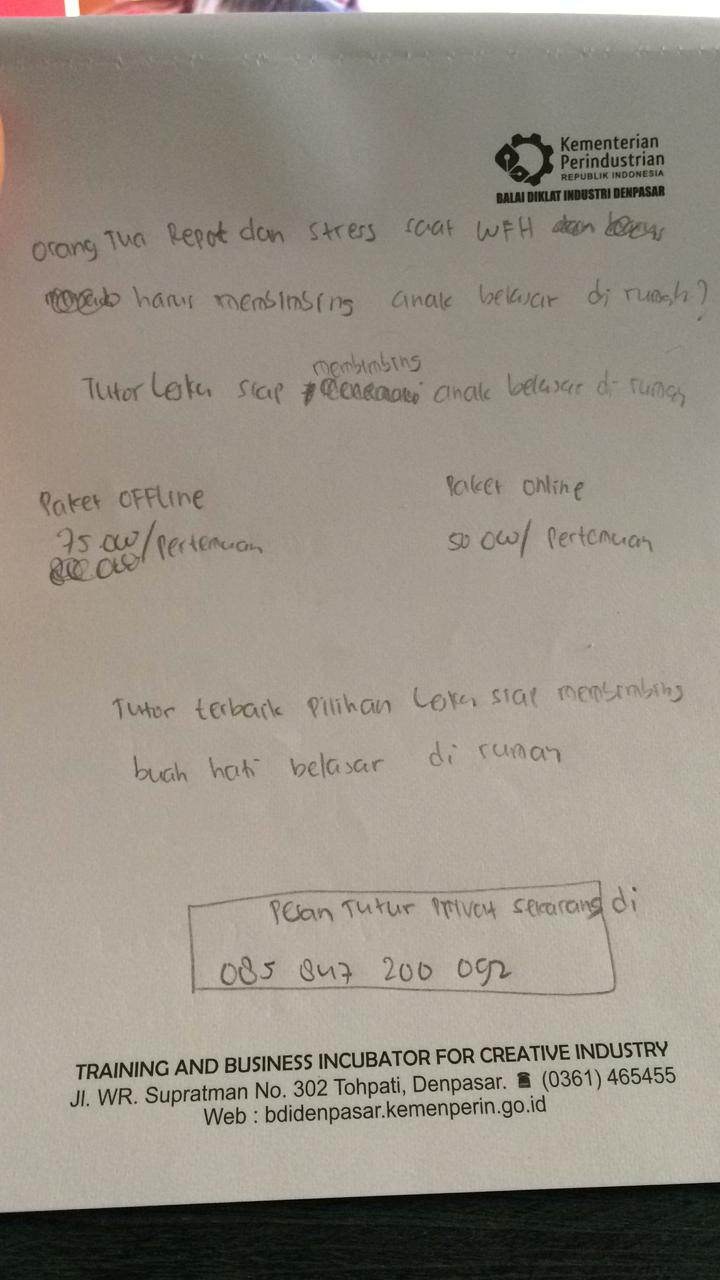 Kementerian
Perindustrian
REPUBLIK INDONESIA
BALAI DIKLAT INDUSTRI DENPASAR
Orang Tua Repot dan stress saat WFH
harus membimbing anak belajar di rumah?
membimbing
Tutor Loka siap anak belajar di rumah
Paket OFFline
Paket online
75.000/pertemuan
50 000/ pertemuan
Tutor terbaik pilihan Loka siap membimbing
buah hati belajar di rumah
Pesan Tutur privat sekarang di
085 847 200 092
TRAINING AND BUSINESS INCUBATOR FOR CREATIVE INDUSTRY
Jl. WR. Supratman No. 302 Tohpati, Denpasar. ☎ (0361) 465455
Web : bdidenpasar.kemenperin.go.id